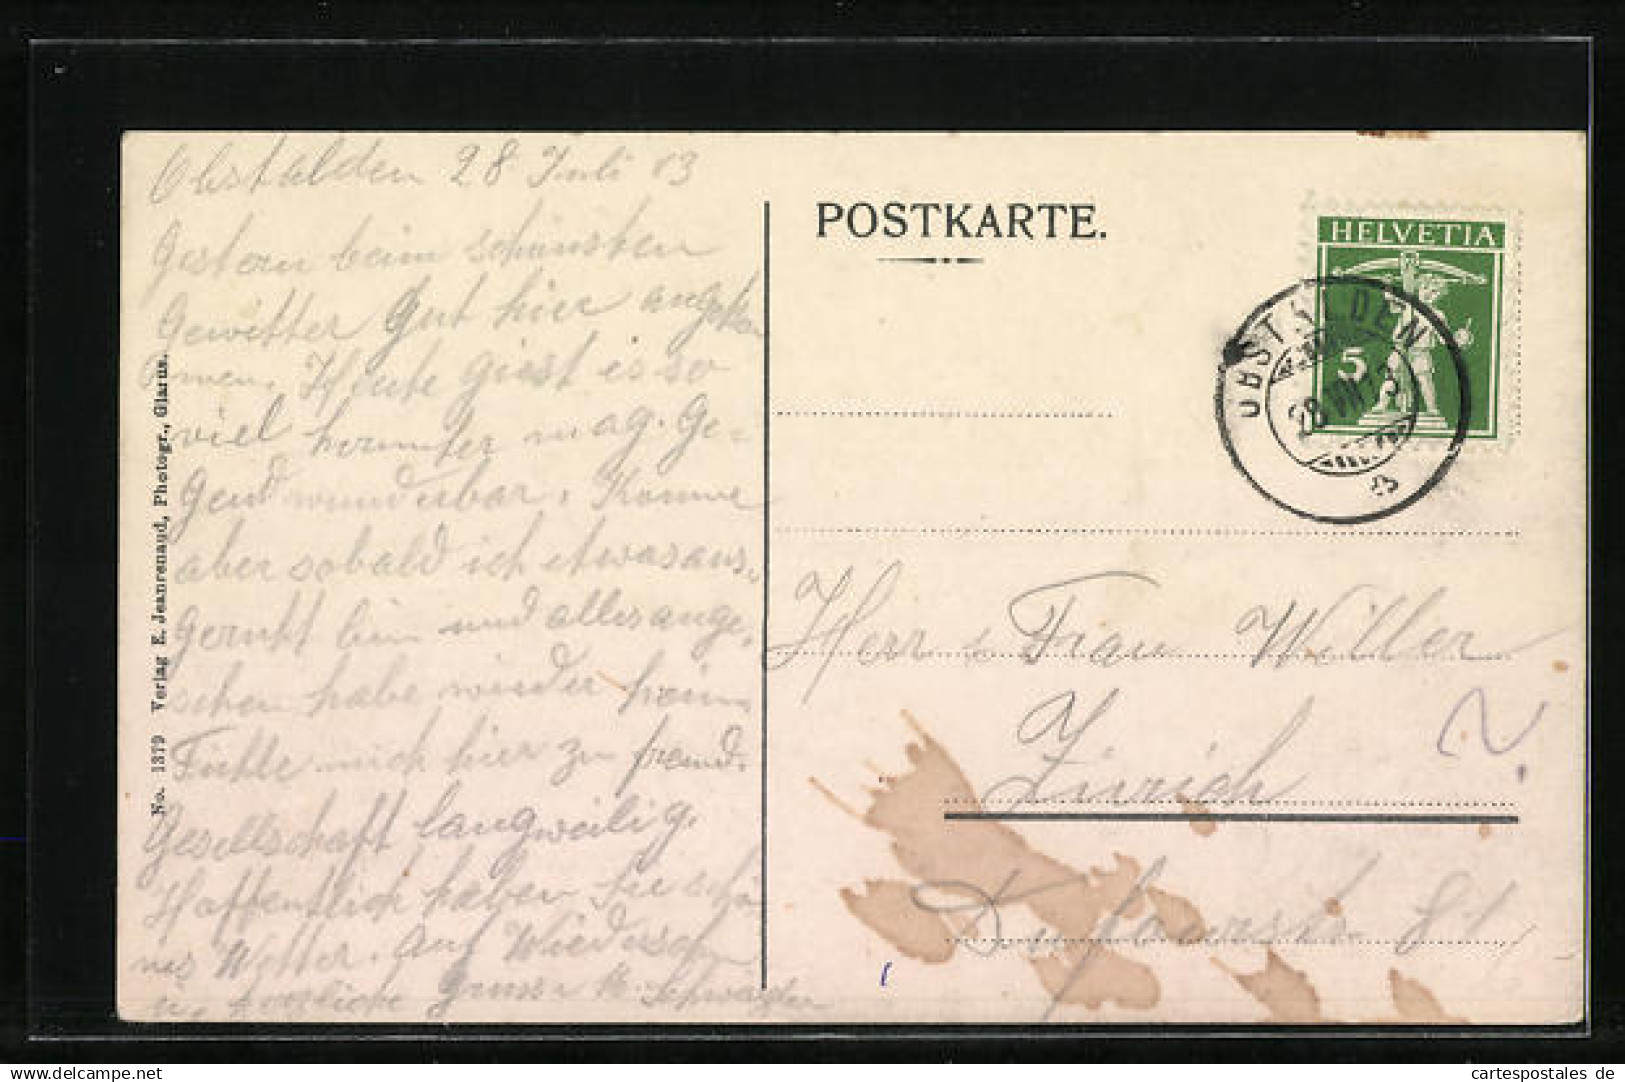 Obstalden 28 Juli 13
Gestern beim schönsten
Gewitter gut hier angekom
men. Heute giest es so
viel herunter mag. Ge-
gend wunderbar. Komme
aber sobald ich etwas aus-
geruht bin und alles ange-
sehen habe wieder heim
Fühle mich hier zu fremd.
Gesellschaft langweilig.
Hoffentlich haben Sie schö
nes Wetter. Auf Wiedersehn
herzliche Grüsse
No. 1379 Verlag E. Jeanrenaud, Photogr., Glarus.
POSTKARTE.
HELVETIA
5
OBSTALDEN
28 VII 13
Herr & Frau Willer
Zürich
81
www.delcampe.net
cartespostales de